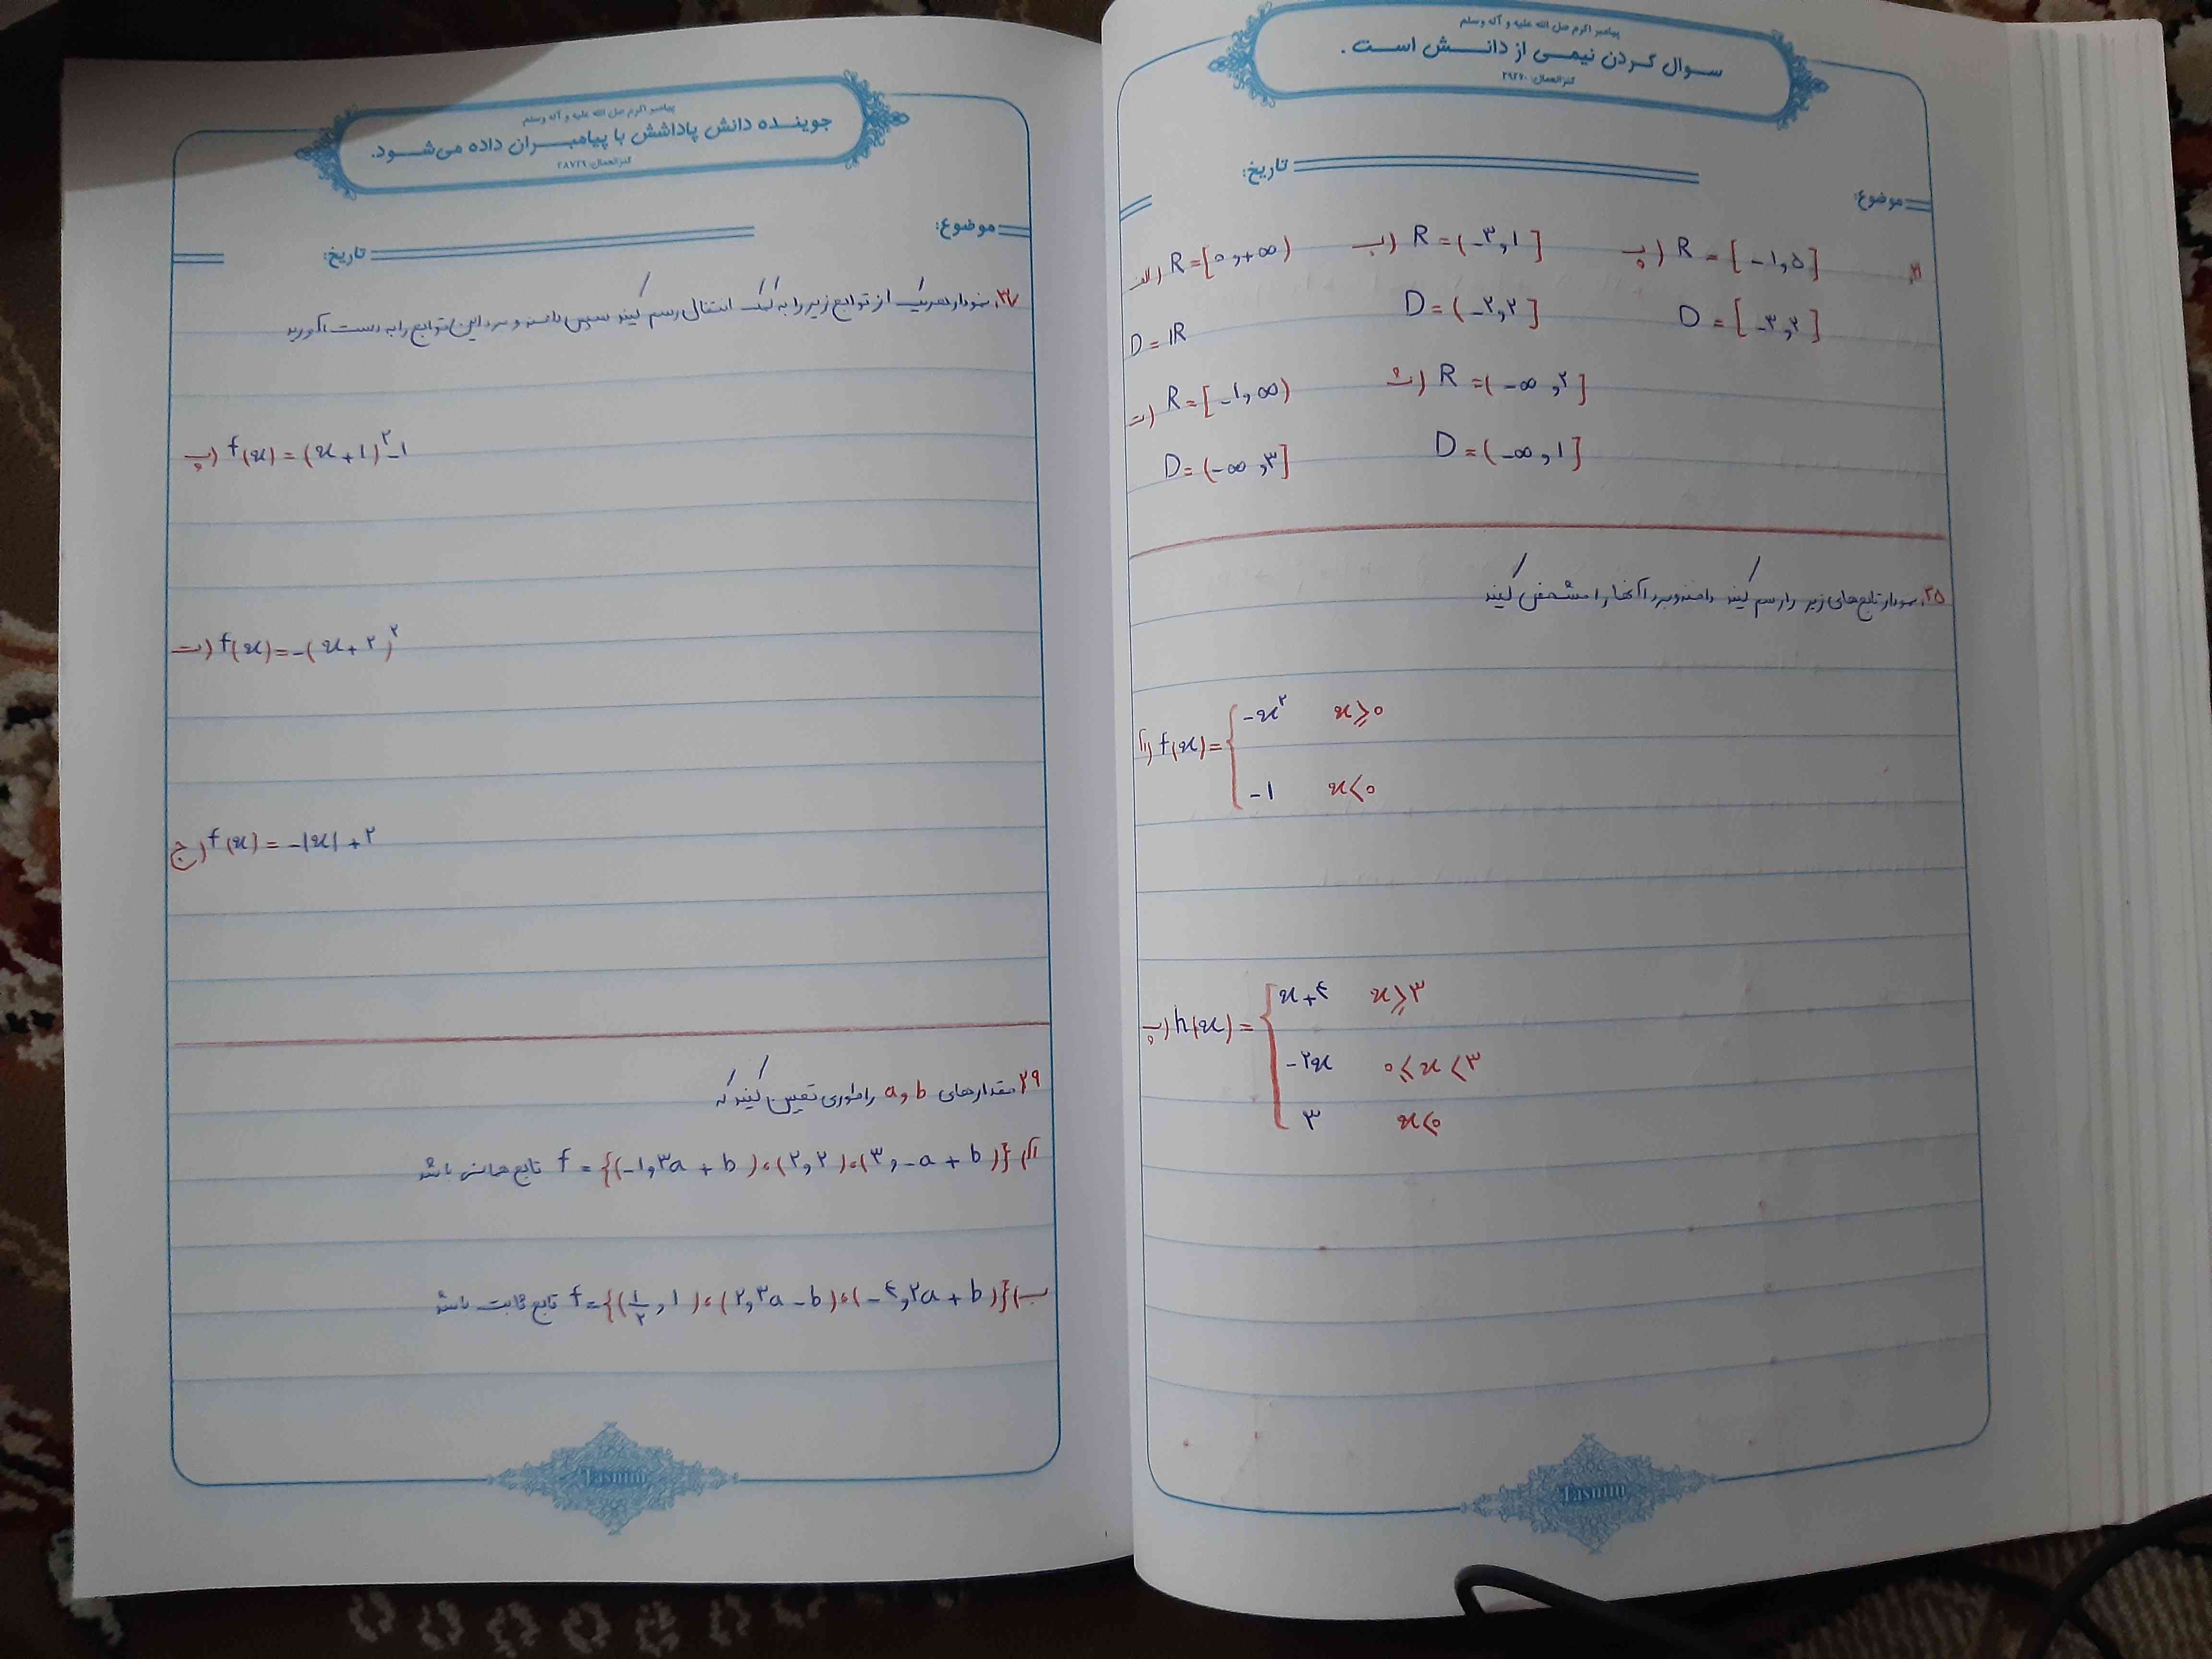 پیامبر اکرم صل الله علیه و آله وسلم
سوال کردن نیمی از دانش است.
کنزالعمال: ۲۹۲۶۰
تاریخ:
موضوع:
الف) R = [۰,+∞)   ب) R = (-۳,۱]   پ) R = [-۱,۵]
D = IR   D = (-۲,۲]   D = [-۳,۲]
ت) R = [-۱,∞)   ث) R = (-∞,۲]
D = (-∞,۳]   D = (-∞,۱]
۲۵. نمودار تابع‌های زیر را رسم کنید دامنه و برد آنها را مشخص کنید
آ) f(x) = { -x²   x ≥ ۰
-۱   x < ۰
پ) h(x) = { x+۴   x ≥ ۳
-۲x   ۰ ≤ x < ۳
۳   x < ۰
Tasnim
پیامبر اکرم صل الله علیه و آله وسلم
جوینده دانش پاداشش با پیامبران داده می‌شود.
کنزالعمال: ۲۸۷۲۹
موضوع:
تاریخ:
نمودار هریک از توابع زیر را به کمک انتقال رسم کنید سپس دامنه و برد این توابع را به دست آورید
پ) f(x) = (x+۱)² -۱
ت) f(x) = -(x+۲)²
ج) f(x) = -|x| + ۲
۲۹ مقدارهای a و b را طوری تعیین کنید که
آ) f = {(-۱,۳a + b)،(۲,۲)،(۳,-a + b)} تابع همانی باشد
ب) f = {(۱/۲,۱)،(۲,۳a - b)،(-۴,۲a + b)} تابع ثابت باشد
Tasnim